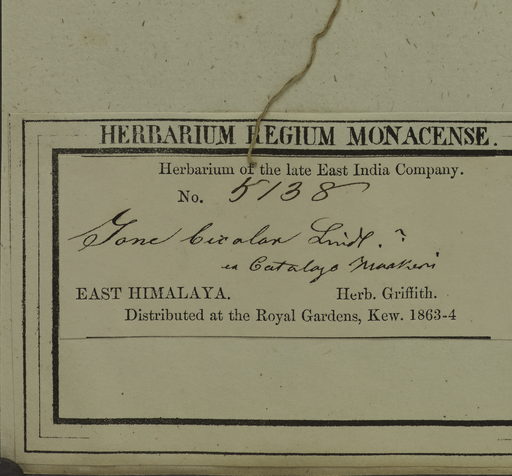 HERBARIUM REGIUM MONACENSE.
Herbarium of the late East India Company.
No. 5138
Ione bicolor Lindl. ?
ex Catalogo
EAST HIMALAYA. Herb. Griffith.
Distributed at the Royal Gardens, Kew. 1863-4